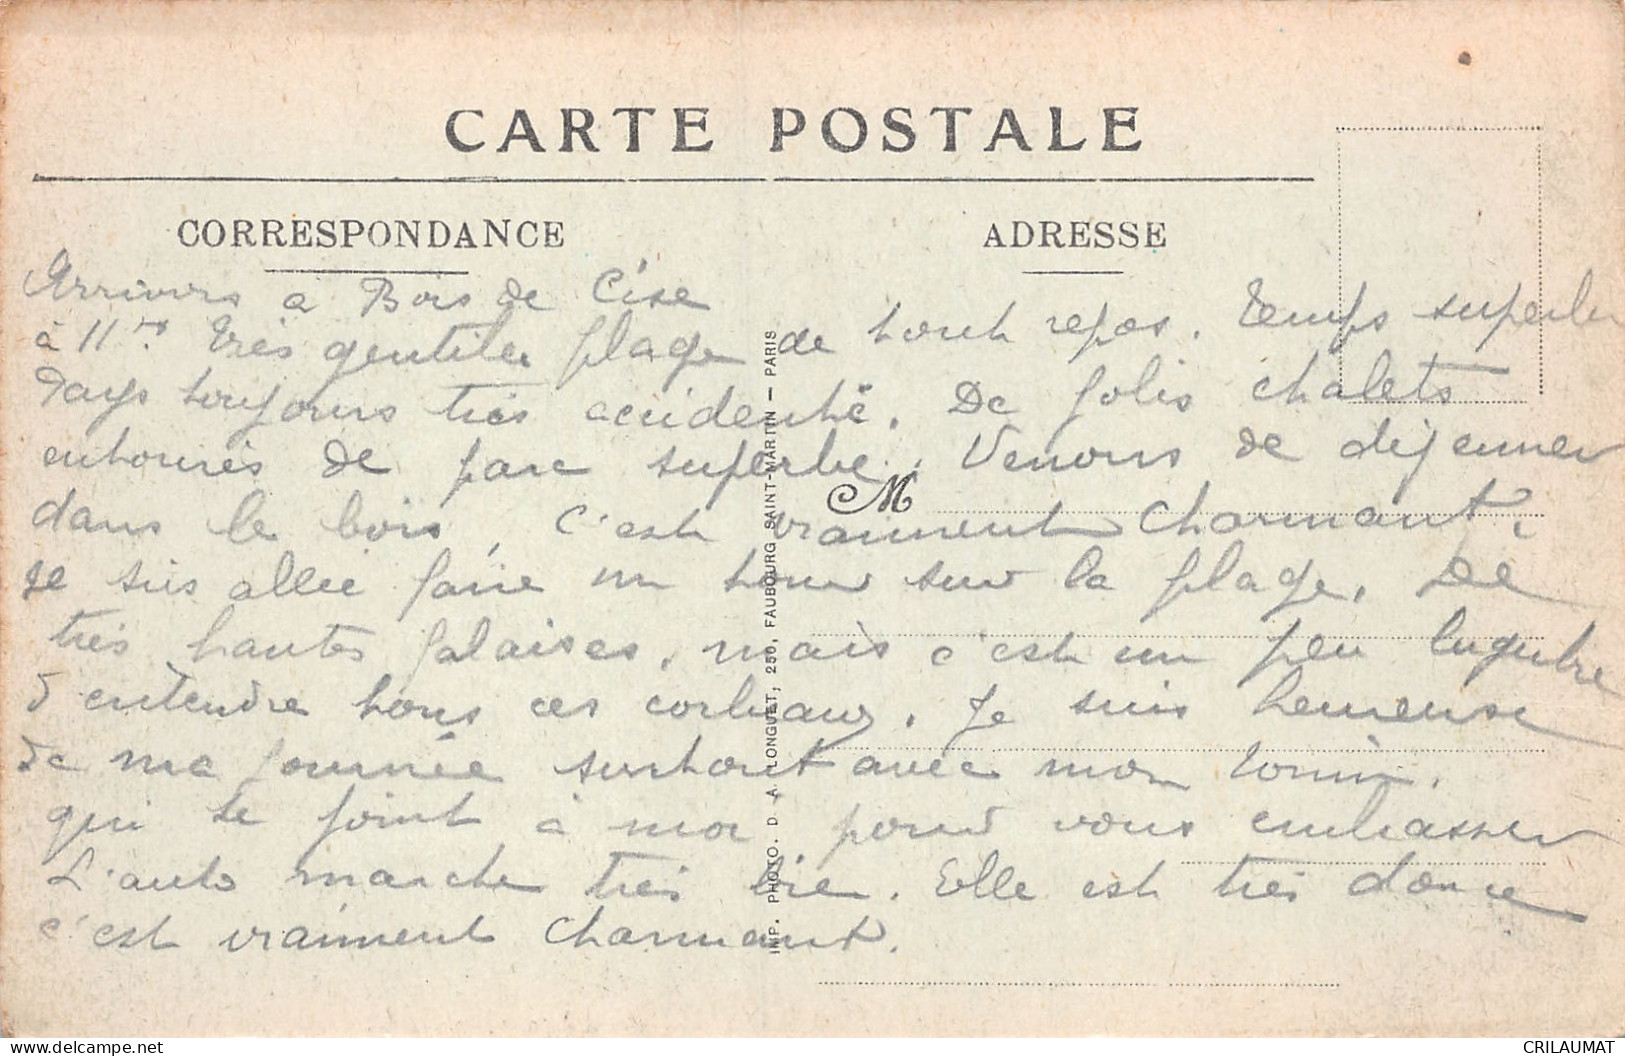 CARTE POSTALE
CORRESPONDANCE
ADRESSE
Arrivons a Bois de Cise
à 11 hrs. Très gentille plage de tout repos. Temps superbe
Pays toujours très accidenté. De jolis chalets
entourés de parc superbe. Venons de déjeuner
dans le bois, C'est vraiment charmant.
Je suis allée faire un tour sur la plage. De
très hautes falaises, mais c'est un peu lugubre
d'entendre tous ces corbeaux. Je suis heureuse
de ma journée surtout avec mon
qui se joint à moi pour vous embrasser
L'auto marche très bien. Elle est très douce
c'est vraiment charmant.
M
IMP. PHOTO. D. A. LONGUET, 250, FAUBOURG SAINT-MARTIN — PARIS
CRILAUMAT